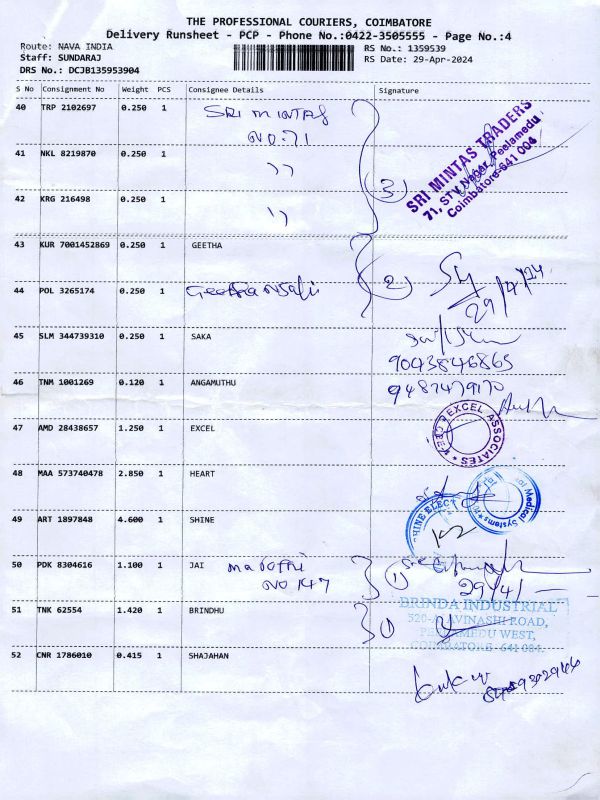 THE PROFESSIONAL COURIERS, COIMBATORE
Delivery Runsheet - PCP - Phone No.:0422-3505555 - Page No.:4
Route: NAVA INDIA
RS No.: 1359539
Staff: SUNDARAJ
RS Date: 29-Apr-2024
DRS No.: DCJB135953904
S No Consignment No Weight PCS Consignee Details Signature
40 TRP 2102697 0.250 1 SRI MINTAS
NO: 71
41 NKL 8219870 0.250 1 ,,
3
SRI MINTAS TRADERS
71, STV Nagar, Peelamedu
Coimbatore-641 004
42 KRG 216498 0.250 1 ,,
43 KUR 7001452869 0.250 1 GEETHA
44 POL 3265174 0.250 1 Geetha
2
29/4/24
45 SLM 344739310 0.250 1 SAKA
9043846865
46 TNM 1001269 0.120 1 ANGAMUTHU
9487479170
47 AMD 28438657 1.250 1 EXCEL
EXCEL ASSOCIATES
48 MAA 573740478 2.850 1 HEART
Medical Systems
49 ART 1897848 4.600 1 SHINE
SHINE ELECT
50 PDK 8304616 1.100 1 JAI
NO 147
1
29/4/
51 TNK 62554 1.420 1 BRINDHU
1
BRINDA INDUSTRIAL
520-A, AVINASHI ROAD,
PEELAMEDU WEST,
COIMBATORE - 641 004.
52 CNR 1786010 0.415 1 SHAJAHAN